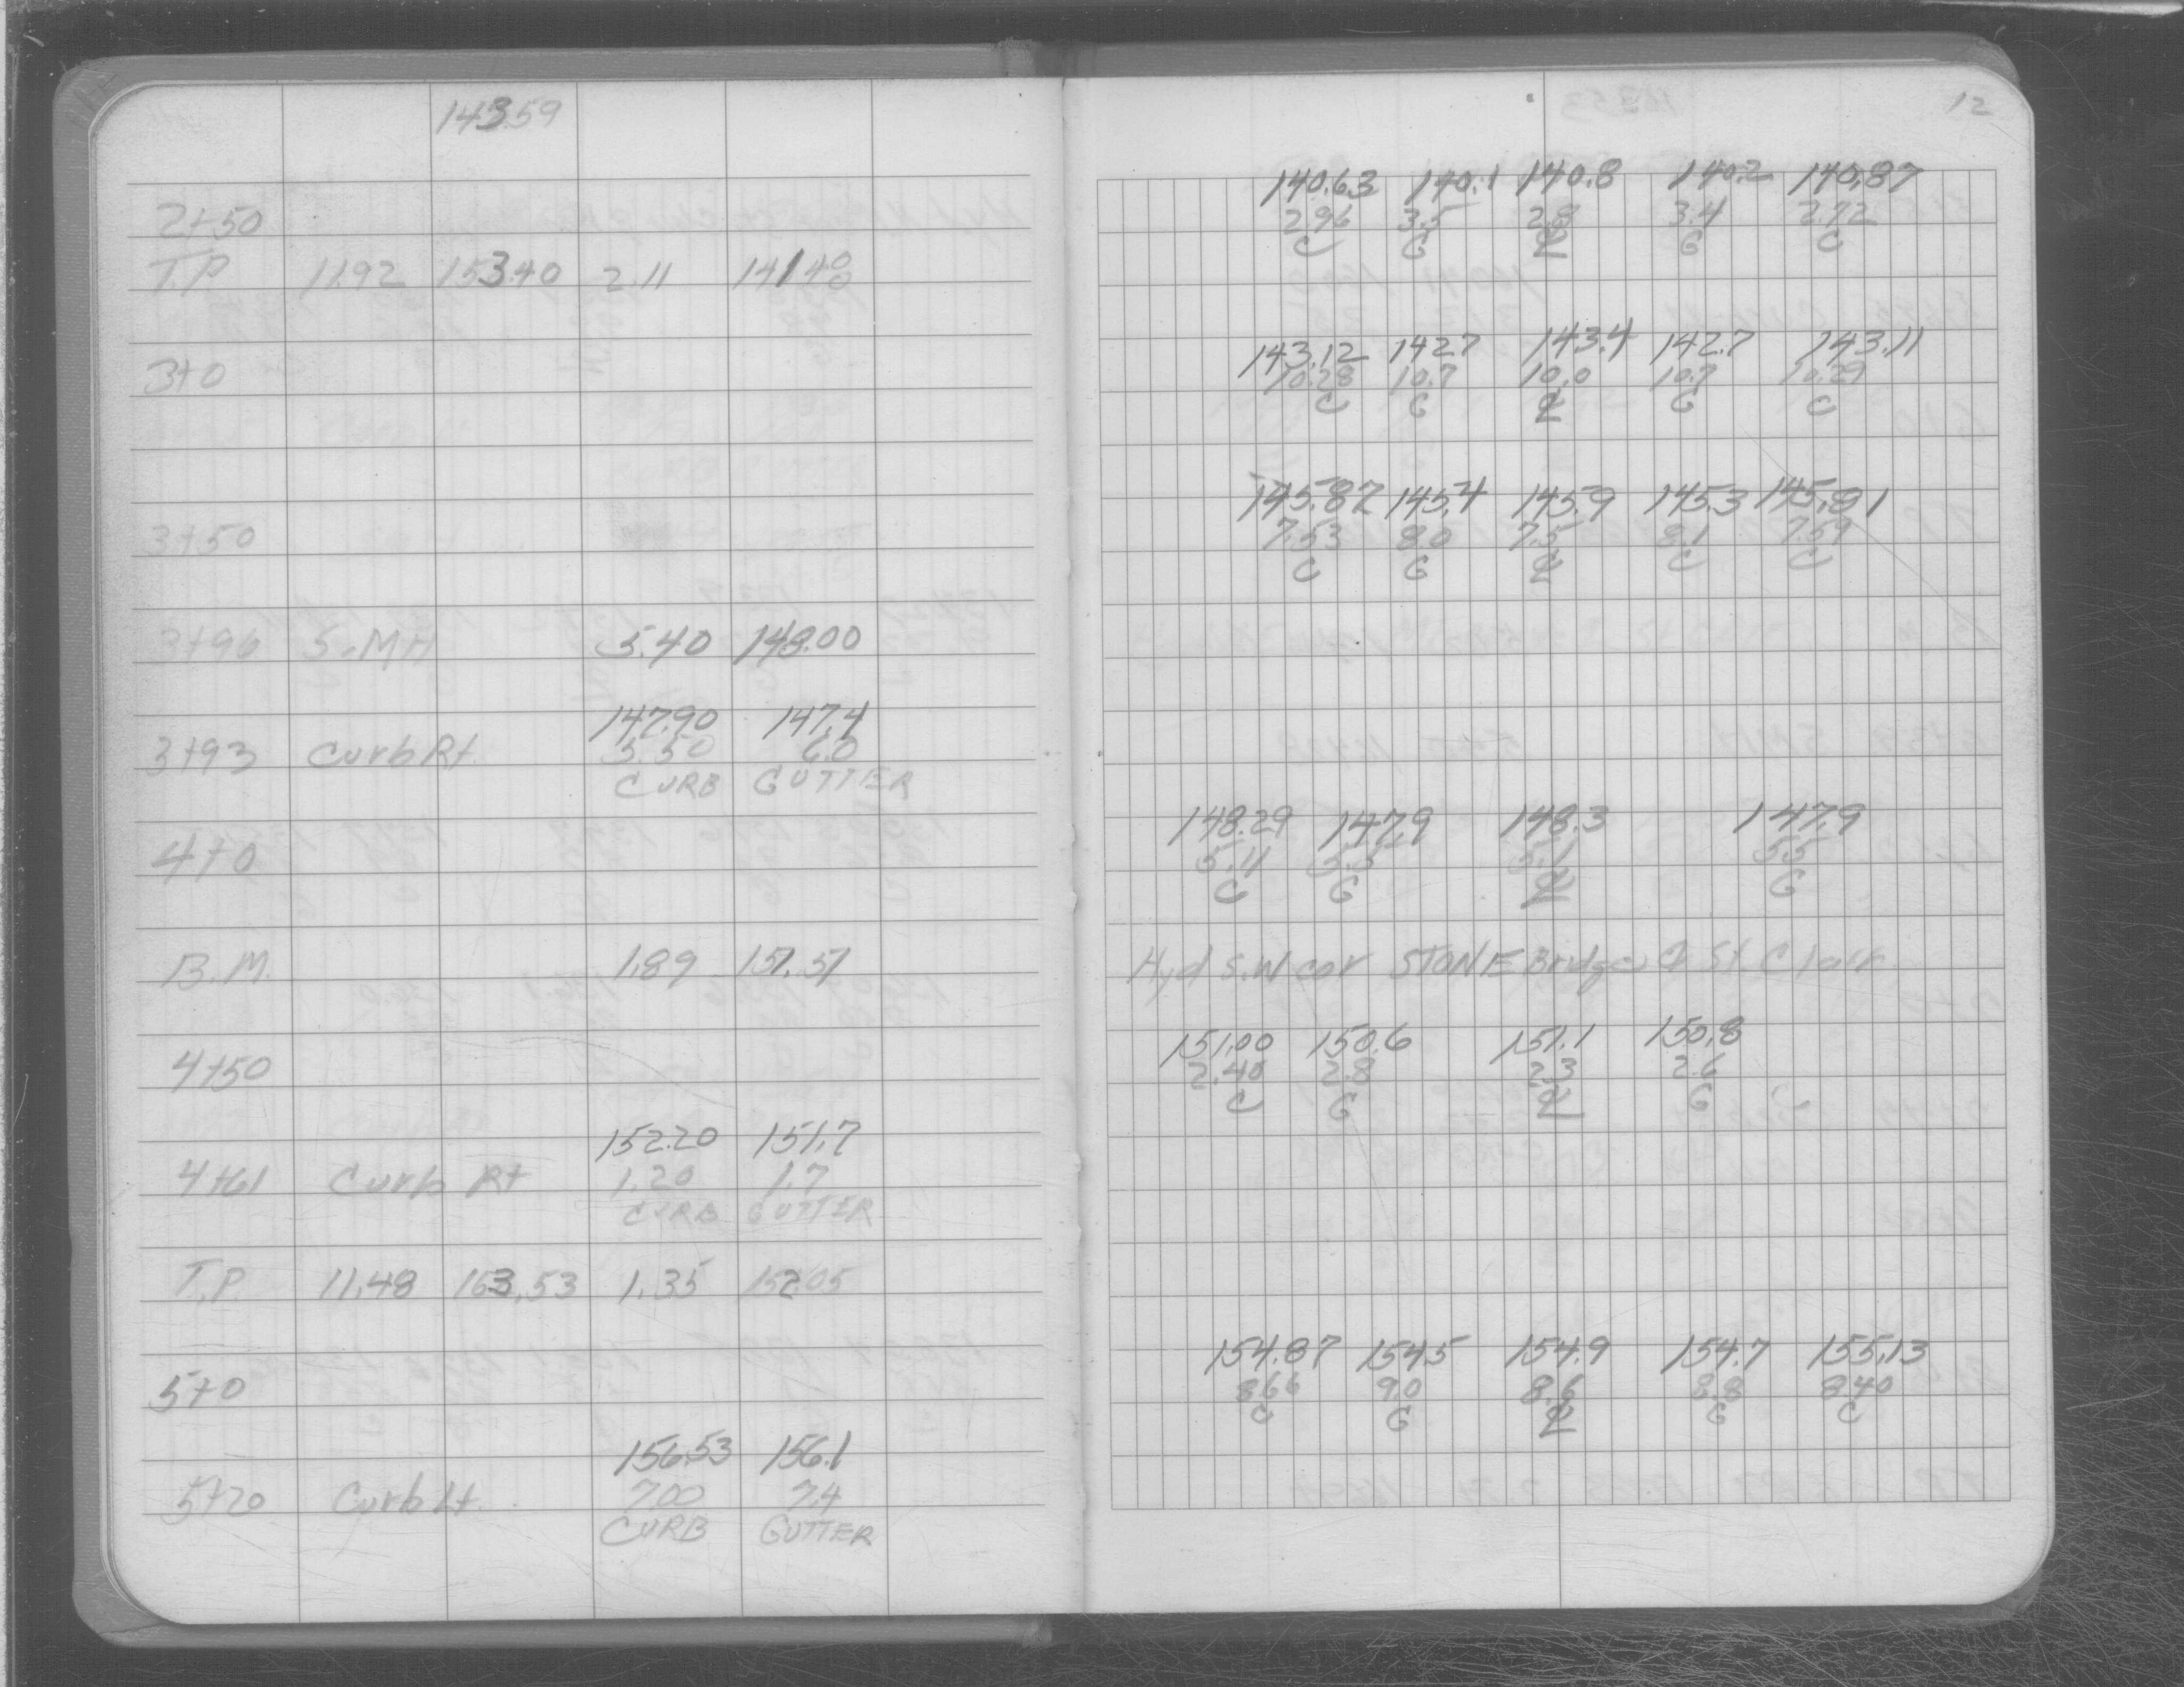 143.59
2+50
T.P. 11.92 153.40 2.11 141.48
3+0
3+50
3+96 S.MH 5.40 148.00
147.90 147.4
3+93 Curb Rt. 5.50 6.0
CURB GUTTER
4+0
B.M. 1.89 151.51
4+50
152.20 151.7
4+61 Curb Rt 1.20 1.7
CURB GUTTER
T.P. 11.48 163.53 1.35 152.05
5+0
156.53 156.1
5+20 Curb Lt. 7.00 7.4
CURB GUTTER
12
140.63 140.1 140.8 140.2 140.87
2.96 3.5 2.8 3.4 2.72
C G ℄ G C
143.12 142.7 143.4 142.7 143.11
10.28 10.7 10.0 10.7 10.29
C G ℄ G C
145.87 145.4 145.9 145.3 145.81
7.53 8.0 7.5 8.1 7.59
C G ℄ C C
148.29 147.9 148.3 147.9
5.11 5.5 5.1 5.5
C G ℄ G
Hyd S.W cor STONE Bridge & St. Clair
151.00 150.6 151.1 150.8
2.40 2.8 2.3 2.6
C G ℄ G
154.87 154.5 154.9 154.7 155.13
8.66 9.0 8.6 8.8 8.40
C G ℄ G C